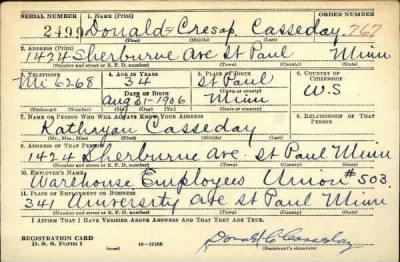 SERIAL NUMBER 1. NAME (Print) ORDER NUMBER
2499 Donald Cresap Casseday 767
(First) (Middle) (Last)
2. ADDRESS (Print)
1424 Sherburne Ave St Paul Minn
(Number and street or R. F. D. number) (Town) (County) (State)
3. TELEPHONE 4. AGE IN YEARS 5. PLACE OF BIRTH 6. COUNTRY OF CITIZENSHIP
Mi 6268 34 St Paul U.S
DATE OF BIRTH (Town or county)
Aug 31-1906 Minn
(Exchange) (Number) (Mo.) (Day) (Yr.) (State or country)
7. NAME OF PERSON WHO WILL ALWAYS KNOW YOUR ADDRESS 8. RELATIONSHIP OF THAT PERSON
Kathryan Casseday
(Mr., Mrs., Miss) (First) (Middle) (Last)
9. ADDRESS OF THAT PERSON
1424 Sherburne Ave. St Paul Minn
(Number and street or R. F. D. number) (Town) (County) (State)
10. EMPLOYER'S NAME
Warehouse Employees Union #503.
11. PLACE OF EMPLOYMENT OR BUSINESS
341 University Ave St Paul Minn
(Number and street or R. F. D. number) (Town) (County) (State)
I AFFIRM THAT I HAVE VERIFIED ABOVE ANSWERS AND THAT THEY ARE TRUE.
REGISTRATION CARD
D. S. S. Form 1 16-17105 Donald C Casseday
(Registrant's signature)